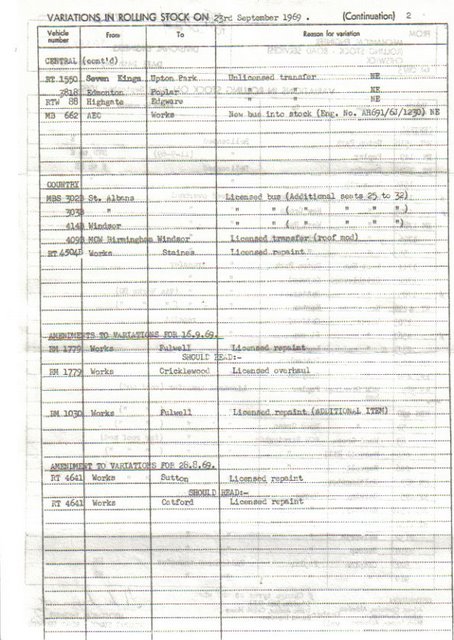 VARIATIONS IN ROLLING STOCK ON 23rd September 1969. (Continuation) 2
Vehicle number From To Reason for variation
CENTRAL (cont'd)
RT 1550 Seven Kings Upton Park Unlicensed transfer NE
3818 Edmonton Poplar " " NE
RTW 88 Highgate Edgware " " NE
MB 662 AEC Works New bus into stock (Eng. No. AH691/61/1230) NE
COUNTRY
MBS 302B St. Albans Licensed bus (Additional seats 25 to 32)
303B " " " ( " " " " )
414B Windsor " " ( " " " " )
409B MCW Birmingham Windsor Licensed transfer (roof mod)
RT 4504B Works Staines Licensed repaint
AMENDMENTS TO VARIATIONS FOR 16.9.69.
RM 1779 Works Fulwell Licensed repaint
SHOULD READ:-
RM 1779 Works Cricklewood Licensed overhaul
RM 1030 Works Fulwell Licensed repaint (ADDITIONAL ITEM)
AMENDMENT TO VARIATIONS FOR 28.8.69.
RT 4641 Works Sutton Licensed repaint
SHOULD READ:-
RT 4641 Works Catford Licensed repaint